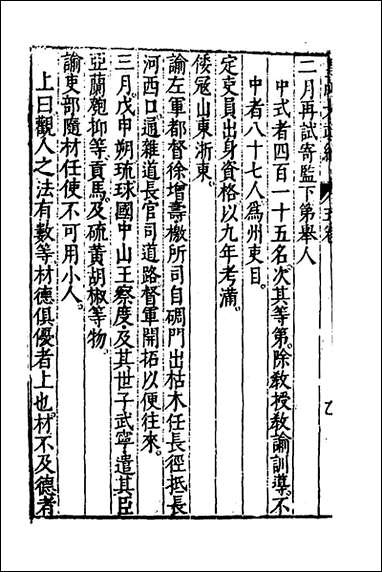 二月再試寄監下第舉人
中式者四百一十五名次其等第除教授教諭訓導不
中者八十七人爲州吏目
定吏員出身資格以九年考滿
倭寇山東浙東
諭左軍都督徐增壽檄所司自碉門出枯木任長徑抵長
河西口通雜道長官司道路督軍開拓以便往來
三月戊申朔琉球國中山王察度及其世子武寧遣其臣
亞蘭匏抑等貢馬及硫黃胡椒等物
諭吏部隨材任使不可用小人
上曰觀人之法有數等材德俱優者上也材不及德者